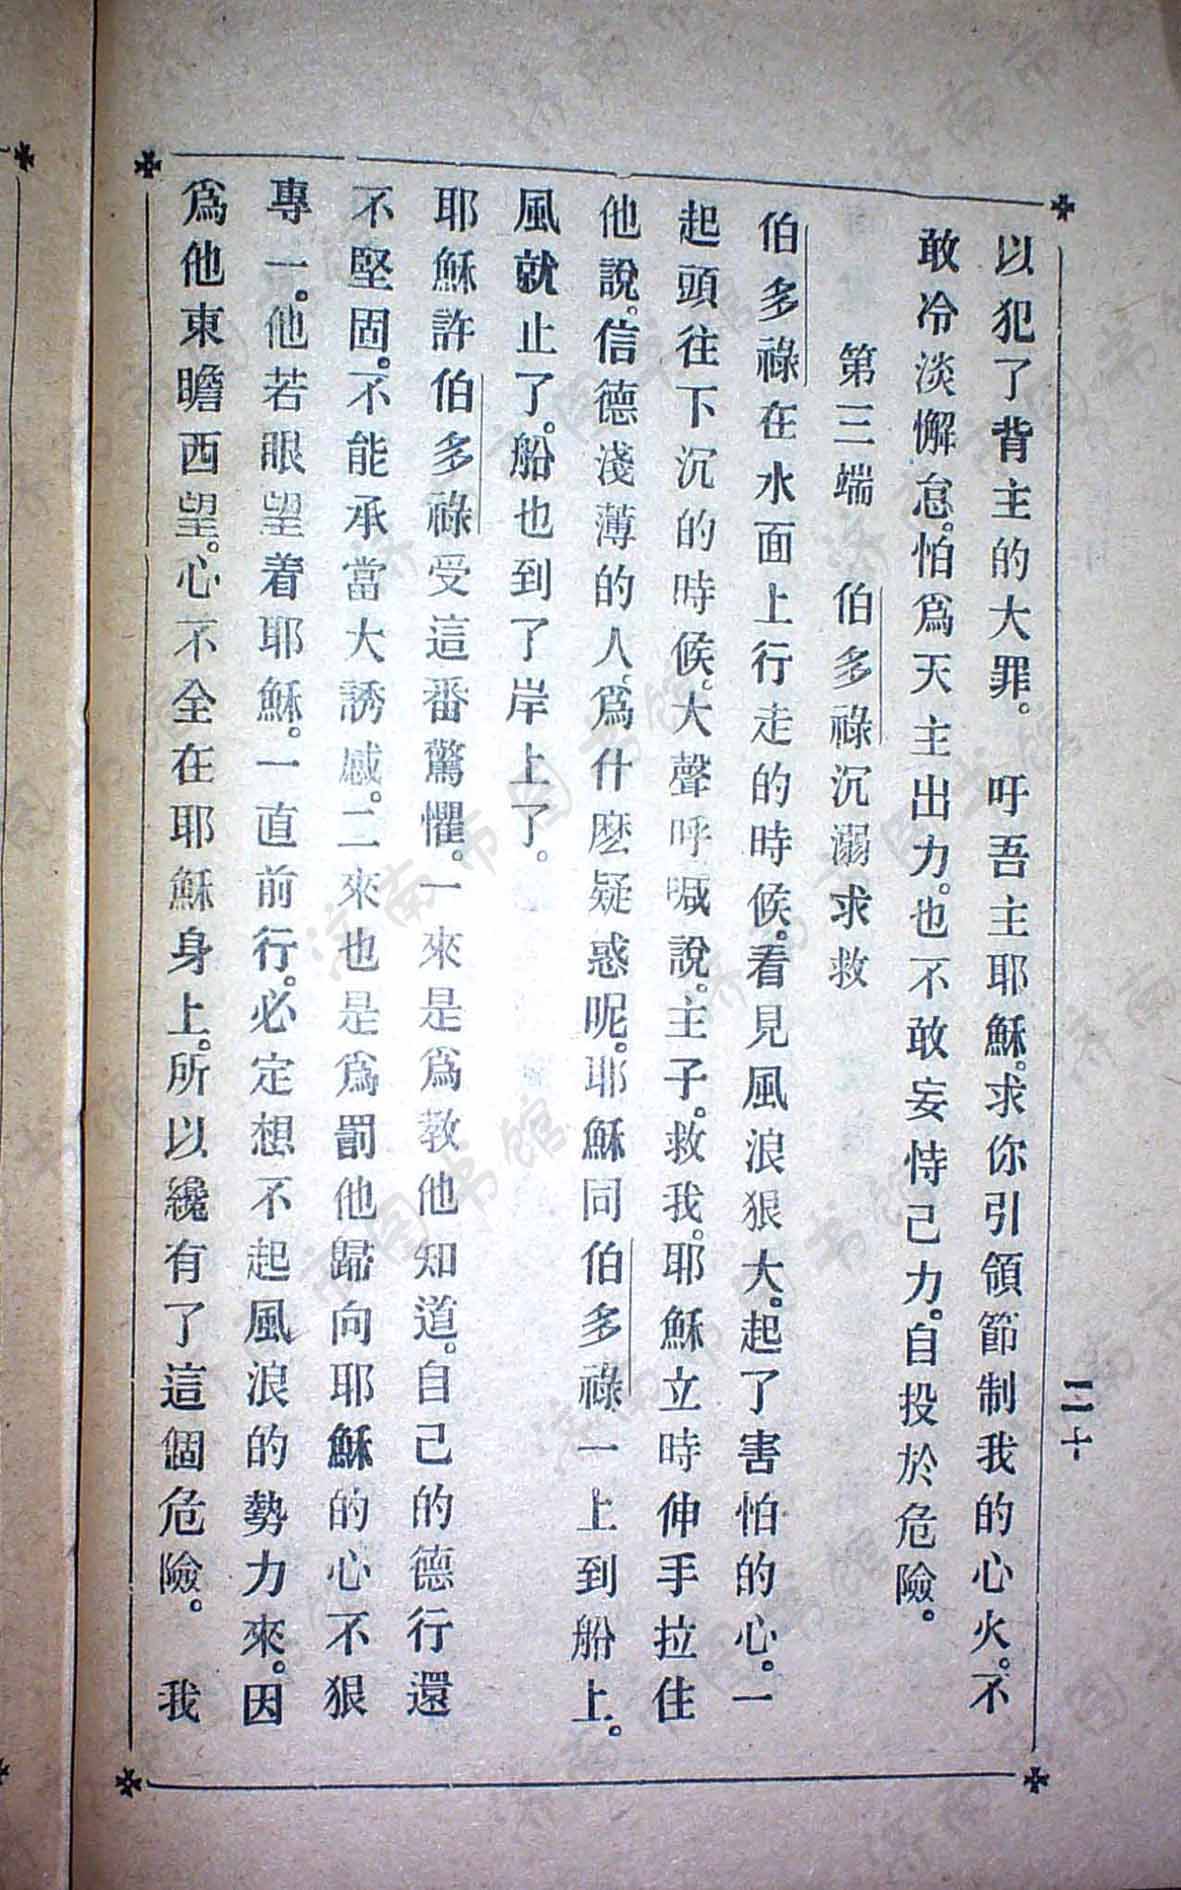 以犯了背主的大罪。　吁吾主耶穌。求你引領節制我的心火。不
敢冷淡懈怠。怕爲天主出力。也不敢妄恃己力。自投於危險。
第三端　伯多祿沉溺求救
伯多祿在水面上行走的時候。看見風浪狠大。起了害怕的心。一
起頭往下沉的時候。大聲呼喊說。主子。救我。耶穌立時伸手拉住
他說。信德淺薄的人。爲什麽疑惑呢。耶穌同伯多祿一上到船上。
風就止了。船也到了岸上了。
耶穌許伯多祿受這番驚懼。一來是爲教他知道。自己的德行還
不堅固。不能承當大誘感。二來也是爲罰他歸向耶穌的心不狠
專一。他若眼望着耶穌。一直前行。必定想不起風浪的勢力來。因
爲他東瞻西望。心不全在耶穌身上。所以纔有了這個危險。　我
二十
济南市图书馆